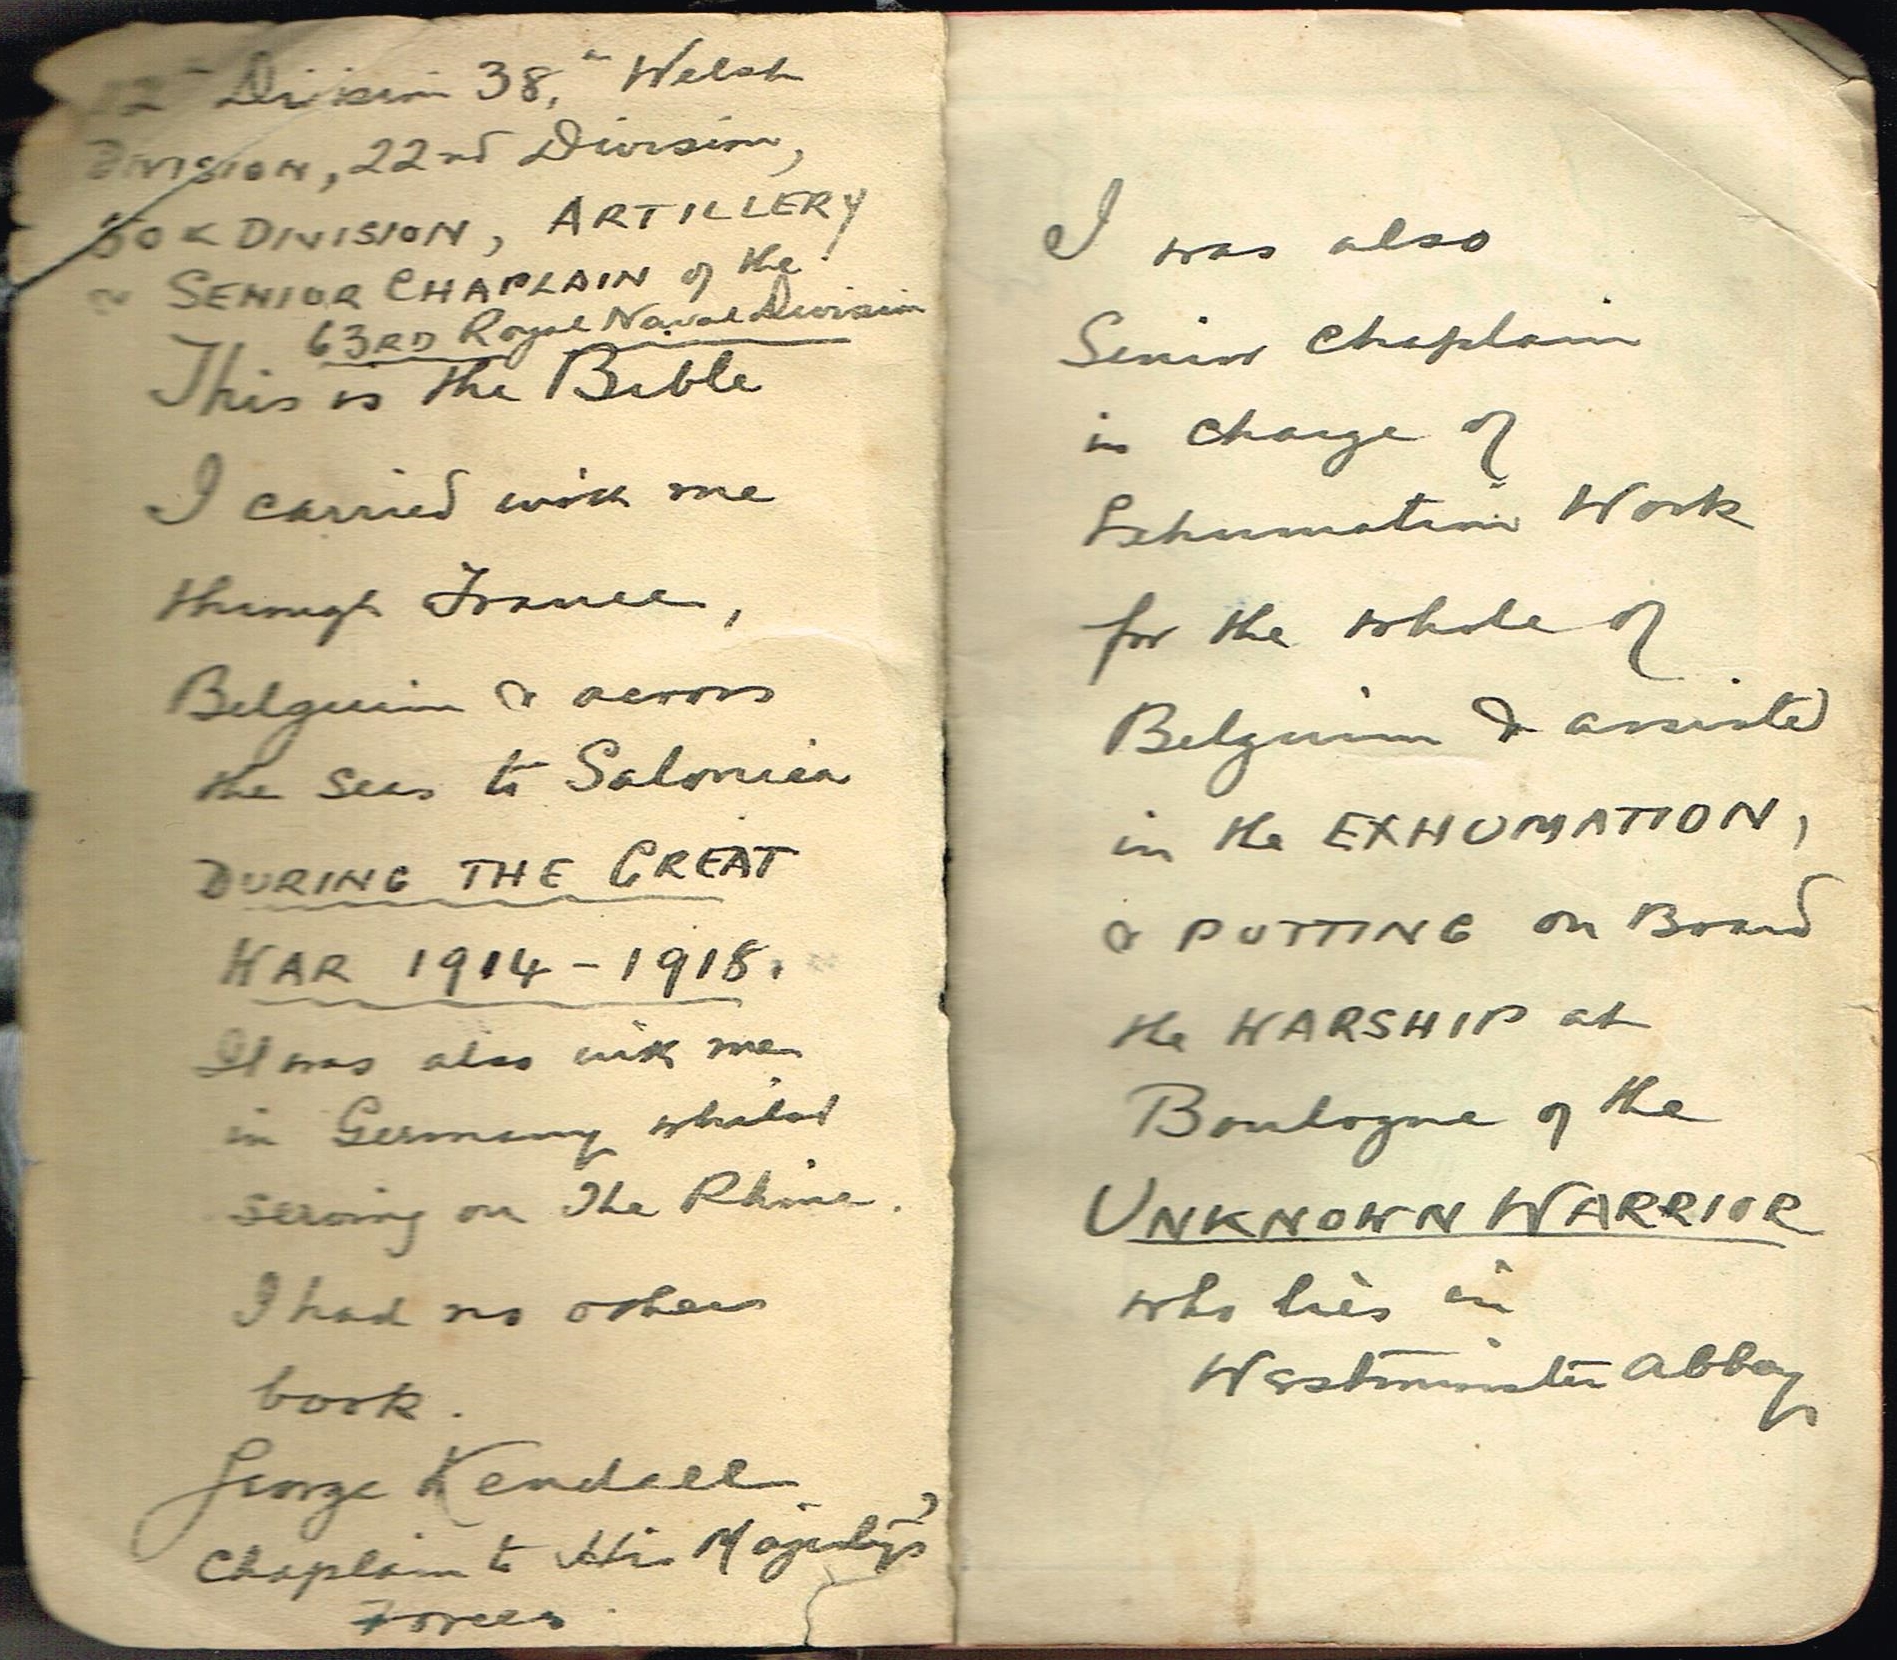 Division 38,th Welsh
DIVISION, 22nd Division,
DIVISION, ARTILLERY
& SENIOR CHAPLAIN of the
63RD Royal Naval Division
This is the Bible
I carried with me
through France,
Belguim & across
the seas to Salonica
DURING THE GREAT
WAR 1914-1918.
It was also with me
in Germany whilst
serving on The Rhine.
I had no other
book.
George Kendall
Chaplain to His Majesty's
Forces.
I was also
Senior Chaplain
in charge of
Exhumation Work
for the whole of
Belguim & assisted
in the EXHUMATION,
& PUTTING on Board
the WARSHIP at
Boulogne of the
UNKNOWN WARRIOR
who lies in
Westminster Abbey